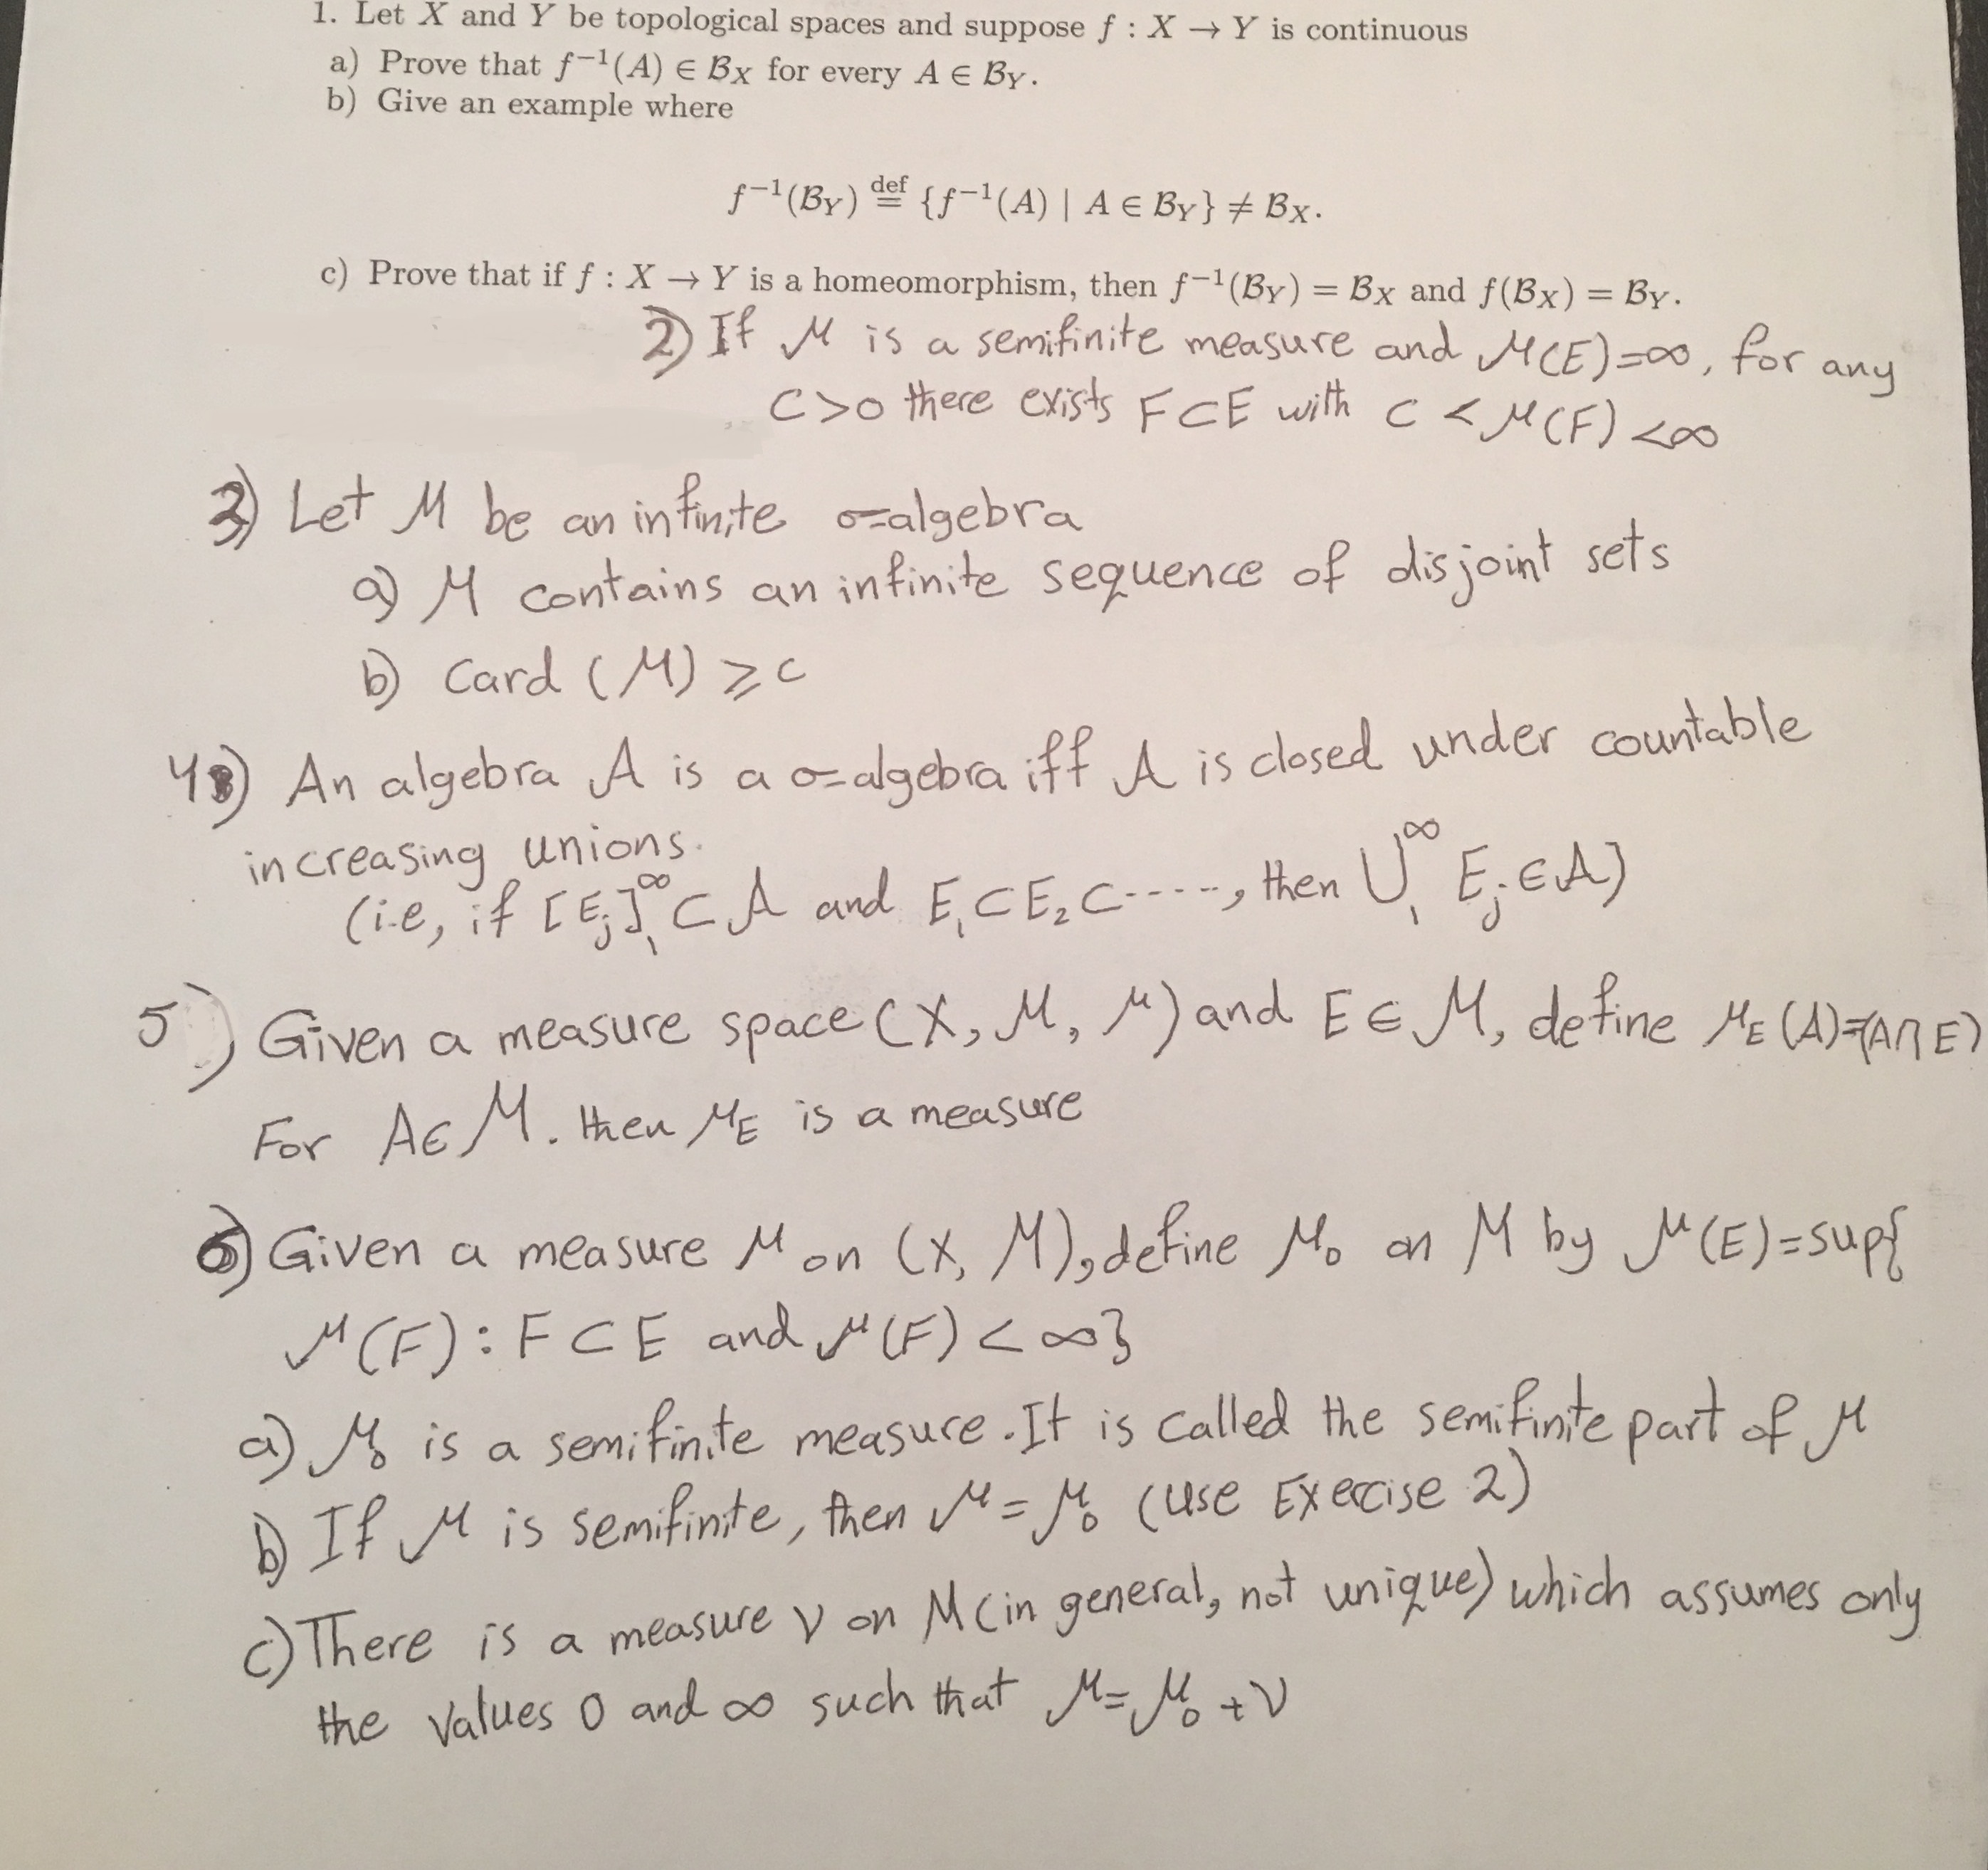 1. Let X and Y be topological spaces and suppose f : X → Y is continuous
a) Prove that f⁻¹(A) ∈ 𝓑_X for every A ∈ 𝓑_Y.
b) Give an example where
f⁻¹(𝓑_Y) ≝ {f⁻¹(A) | A ∈ 𝓑_Y} ≠ 𝓑_X.
c) Prove that if f : X → Y is a homeomorphism, then f⁻¹(𝓑_Y) = 𝓑_X and f(𝓑_X) = 𝓑_Y.
2) If μ is a semifinite measure and μ(E)=∞, for any
C>0 there exists F⊂E with C < μ(F) <∞
3) Let M be an infinite σ-algebra
a) M contains an infinite sequence of disjoint sets
b) Card (M) ⩾ c
4) An algebra A is a σ-algebra iff A is closed under countable
increasing unions.
(i.e, if [E_j]₁^∞ ⊂ A and E₁⊂E₂⊂-----, then ⋃₁^∞ E_j ∈ A)
5) Given a measure space (X, M, μ) and E∈M, define μ_E(A)=(A∩E)
For A∈M. then μ_E is a measure
6) Given a measure μ on (X, M), define μ₀ on M by μ(E)=sup{
μ(F): F⊂E and μ(F)<∞}
a) μ₀ is a semifinite measure. It is called the semifinite part of μ
b) If μ is semifinite, then μ=μ₀ (use Exercise 2)
c) There is a measure ν on M (in general, not unique) which assumes only
the values 0 and ∞ such that μ=μ₀+ν